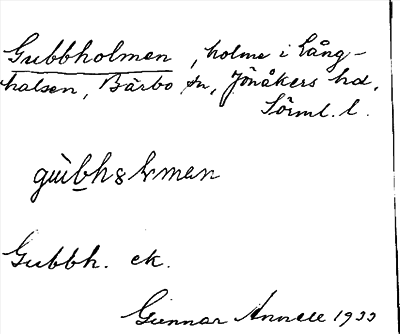 Gubbholmen, holme i Lång-
halsen, Bärbo sn, Jönåkers hd,
Sörml. l.
Gubbh. ek.
Gunnar Annell 1933